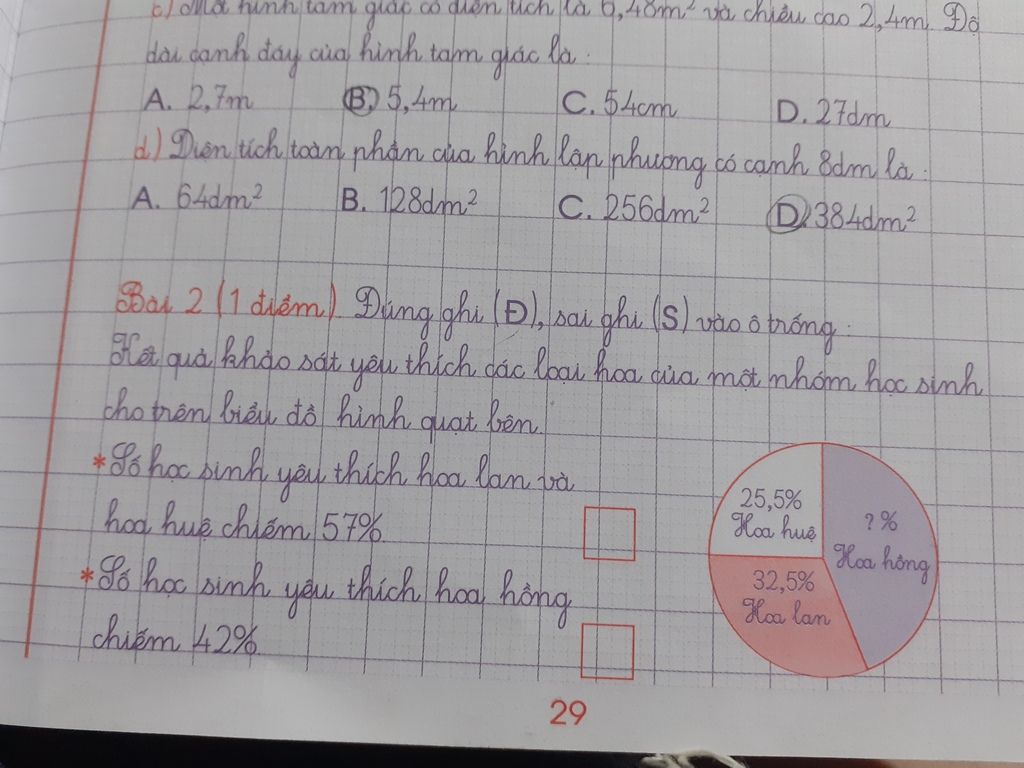 c) Một hình tam giác có diện tích là 6,48m² và chiều cao 2,4m. Độ
dài cạnh đáy của hình tam giác là:
A. 2,7m B. 5,4m C. 54cm D. 27dm
d) Diện tích toàn phần của hình lập phương có cạnh 8dm là:
A. 64dm² B. 128dm² C. 256dm² D. 384dm²
Bài 2 (1 điểm). Đúng ghi (Đ), sai ghi (S) vào ô trống.
Kết quả khảo sát yêu thích các loại hoa của một nhóm học sinh
cho trên biểu đồ hình quạt bên.
* Số học sinh yêu thích hoa lan và
hoa huệ chiếm 57%
* Số học sinh yêu thích hoa hồng
chiếm 42%
25,5%
Hoa huệ
? %
Hoa hồng
32,5%
Hoa lan
29